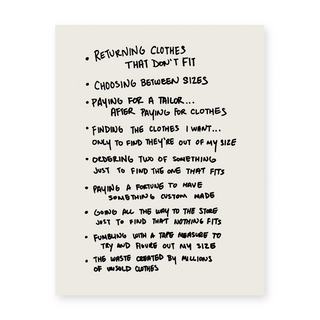 • RETURNING CLOTHES
THAT DON'T FIT
• CHOOSING BETWEEN SIZES
• PAYING FOR A TAILOR...
AFTER PAYING FOR CLOTHES
• FINDING THE CLOTHES I WANT...
ONLY TO FIND THEY'RE OUT OF MY SIZE
• ORDERING TWO OF SOMETHING
JUST TO FIND THE ONE THAT FITS
• PAYING A FORTUNE TO HAVE
SOMETHING CUSTOM MADE
• GOING ALL THE WAY TO THE STORE
JUST TO FIND THAT NOTHING FITS
• FUMBLING WITH A TAPE MEASURE TO
TRY AND FIGURE OUT MY SIZE
• THE WASTE CREATED BY MILLIONS
OF UNSOLD CLOTHES